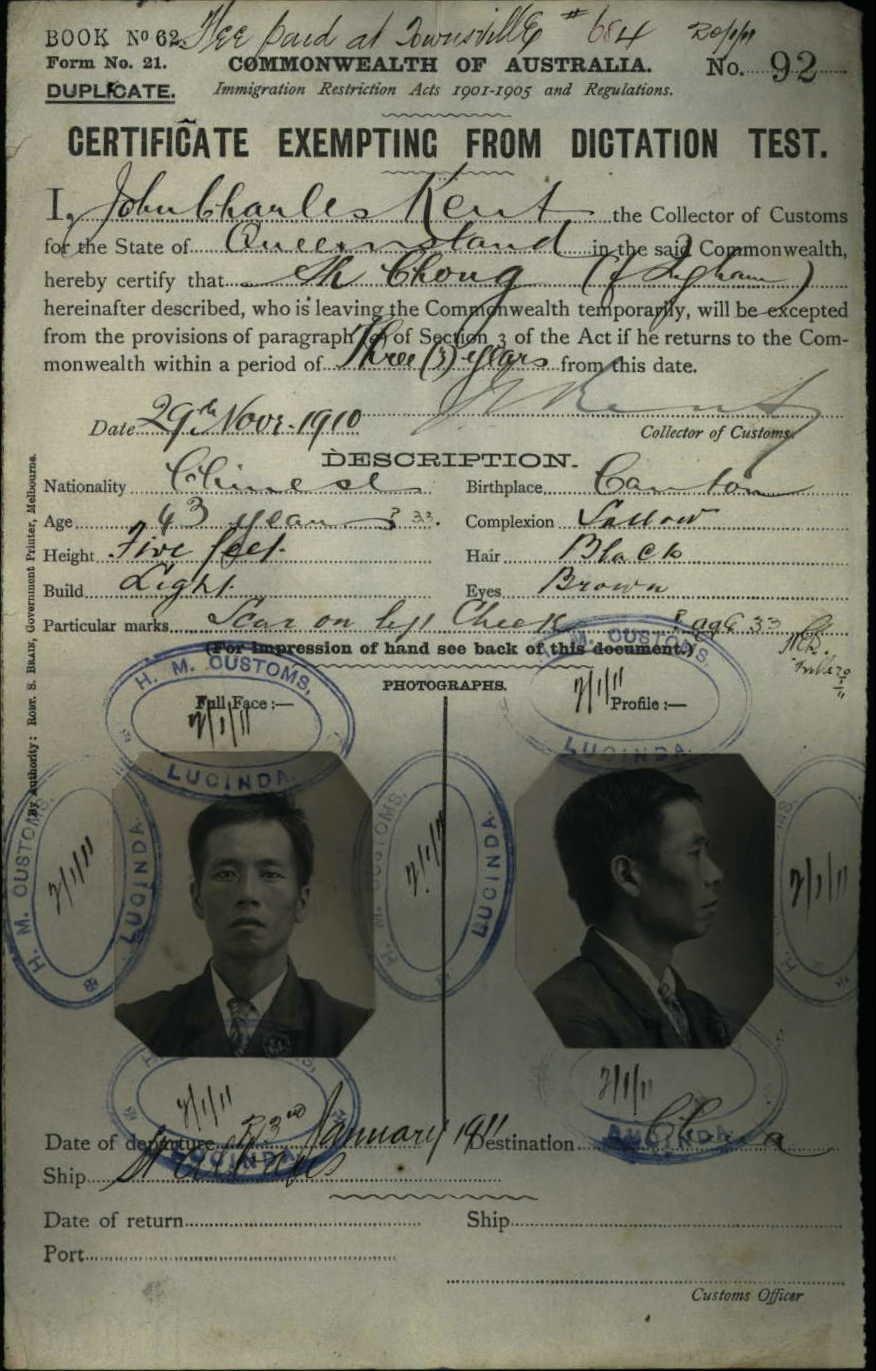 BOOK No 62. Fee paid at Townsville # 684
Form No. 21. COMMONWEALTH OF AUSTRALIA. No. 92
DUPLICATE. Immigration Restriction Acts 1901-1905 and Regulations.
CERTIFICATE EXEMPTING FROM DICTATION TEST.
I, John Charles Kent the Collector of Customs
for the State of Queensland in the said Commonwealth,
hereby certify that Ah Chong (of Ingham)
hereinafter described, who is leaving the Commonwealth temporarily, will be excepted
from the provisions of paragraph (a) of Section 3 of the Act if he returns to the Com-
monwealth within a period of Three (3) years from this date.
Date 29th Novr. 1910 J C Kent
Collector of Customs.
DESCRIPTION.
Nationality Chinese Birthplace Canton
Age 43 years ? 33. Complexion Sallow
Height Five feet. Hair Black
Build Light Eyes Brown
Particular marks Scar on left Cheek ? age 33
(For impression of hand see back of this document.)
PHOTOGRAPHS.
Full Face :— Profile :—
H. M. CUSTOMS, LUCINDA. 7/1/11
H. M. CUSTOMS, LUCINDA. 7/1/11
H. M. CUSTOMS, LUCINDA. 7/1/11
H. M. CUSTOMS, LUCINDA. 7/1/11
7/1/11
7/1/11 LUCINDA
7/1/11 LUCINDA
Date of departure 23rd January 1911 Destination China
Ship St Albans
Date of return Ship
Port
Customs Officer
By Authority: ROBT. S. BRAIN, Government Printer, Melbourne.